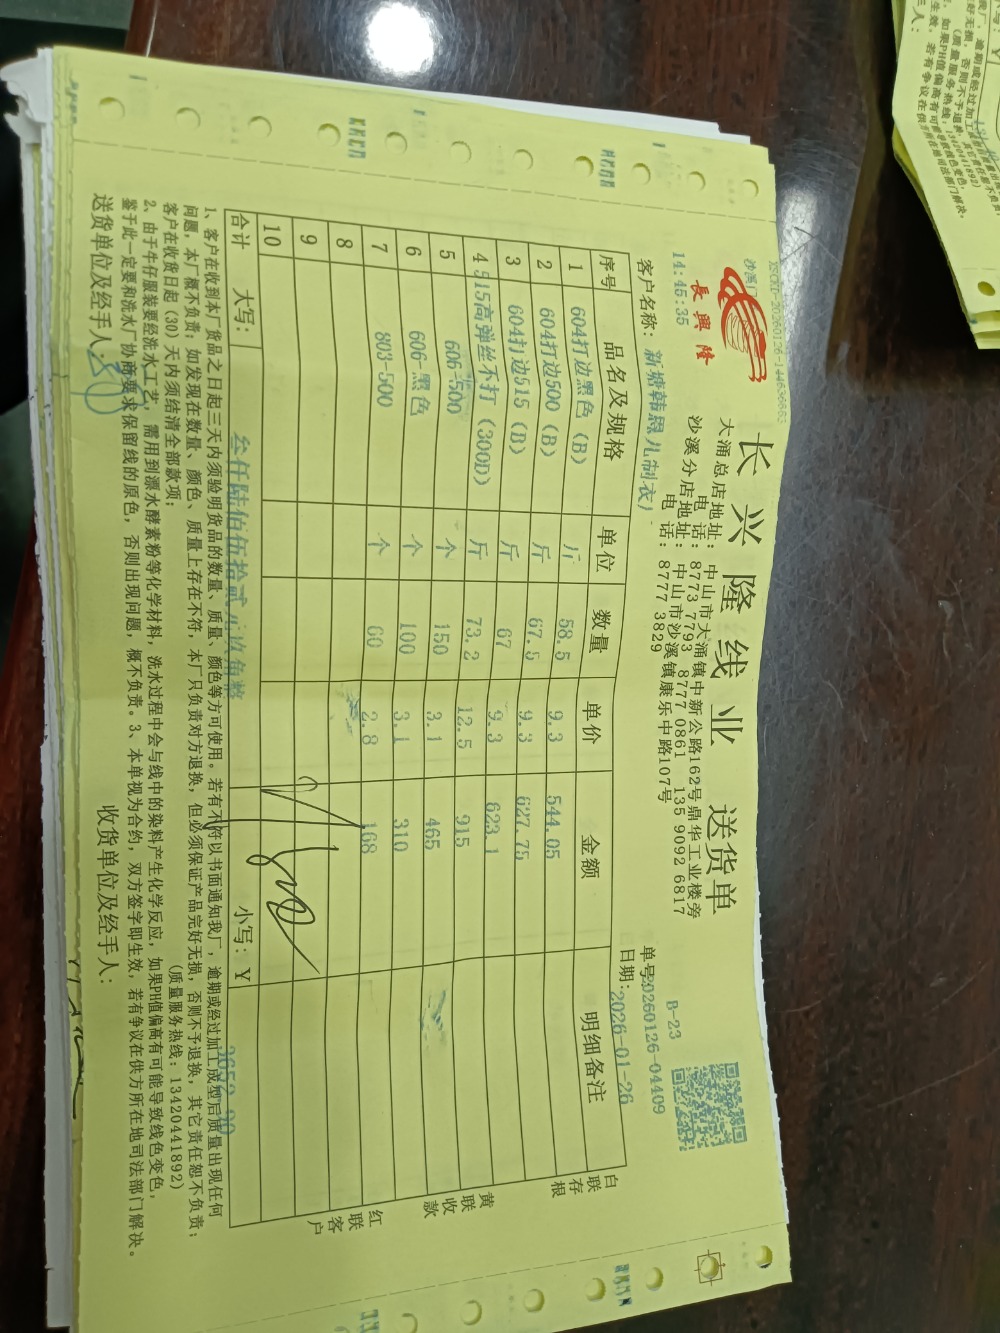 XSCKD-20260126-144636663
长兴隆线业 送货单
長興隆
大涌总店地址：中山市大涌镇中新公路162号鼎华工业楼旁
电话：8773 7793 8777 0861 135 9092 6817
沙溪分店地址：中山市沙溪镇康乐中路107号
电话：8777 3829
B-23
14:45:35
单号:20260126-04409
客户名称：新塘韩恩儿制衣厂
日期：2026-01-26
序号 品名及规格 单位 数量 单价 金额 明细备注
1 604打边黑色（B） 斤 58.5 9.3 544.05
2 604打边500（B） 斤 67.5 9.3 627.75
3 604打边515（B） 斤 67 9.3 623.1
4 515高弹丝不打（300D） 斤 73.2 12.5 915
5 606-500 个 150 3.1 465
6 606-黑色 个 100 3.1 310
7 803-500 个 60 2.8 168
8
9
10
合计 大写：叁仟陆佰伍拾贰元玖角整 小写：￥ 3652.90
白联存根
黄联收款
红联客户
1、客户在收到本厂货品之日起三天内须验明货品的数量、质量、颜色等方可使用。若有不符以书面通知我厂，逾期或经过加工成型后质量出现任何
问题，本厂概不负责；如发现在数量、颜色、质量上存在不符，本厂只负责对方退换，但必须保证产品完好无损，否则不予退换，其它责任恕不负责；
客户在收货日起（30）天内须结清全部款项； （质量服务热线：13420441892）
2、由于牛仔服装要经洗水工艺，需用到漂水酵素粉等化学材料，洗水过程中会与线中的染料产生化学反应，如果PH值偏高有可能导致线色变色，
鉴于此一定要和洗水厂协商要求保留线的原色，否则出现问题，概不负责。3、本单视为合约，双方签字即生效，若有争议在供方所在地司法部门解决。
送货单位及经手人： 收货单位及经手人：